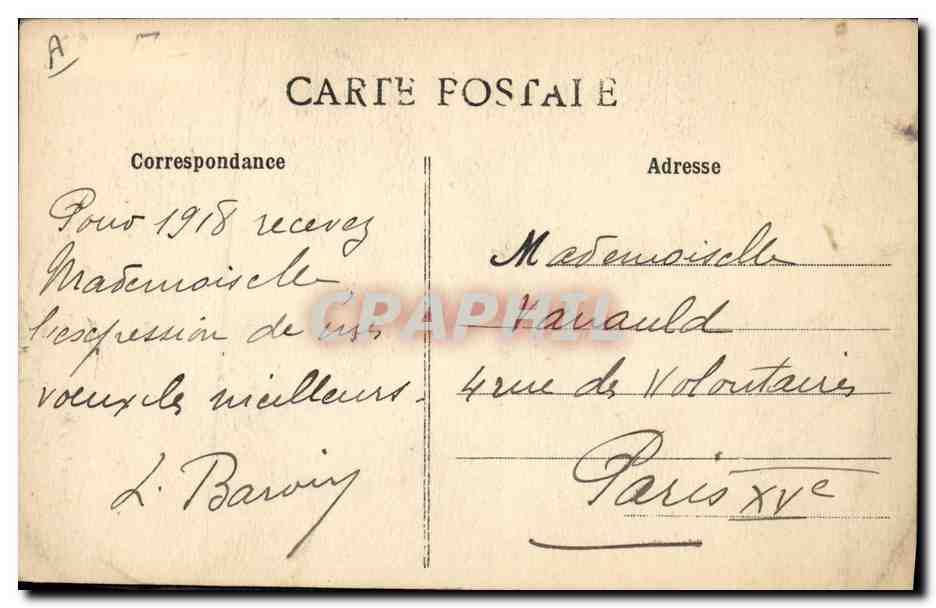 A
CARTE POSTALE
Correspondance
Pour 1918 recevez
Mademoiselle,
l'expression de mes
voeux les meilleurs.
L. Baroin
Adresse
Mademoiselle
4 rue des Volontaires
Paris XVe
CRAPHIL